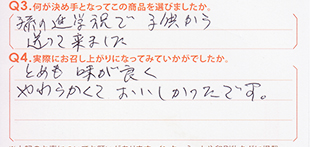 Q3.何が決め手となってこの商品を選びましたか。
孫の進学祝で 子供から
送って来ました
Q4.実際にお召し上がりになってみていかがでしたか。
とても 味が良く
やわらかくて おいしかったです。